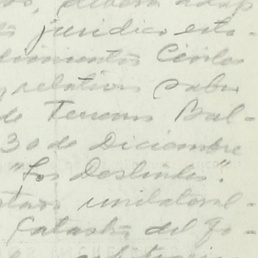 os, deberá adap
s jurídico esta-
dimientos Civiles
y relativo sobre
de Terrenos Bal-
30 de Diciembre
"Los Deslindes".
unilateral-
Catastro del Go-